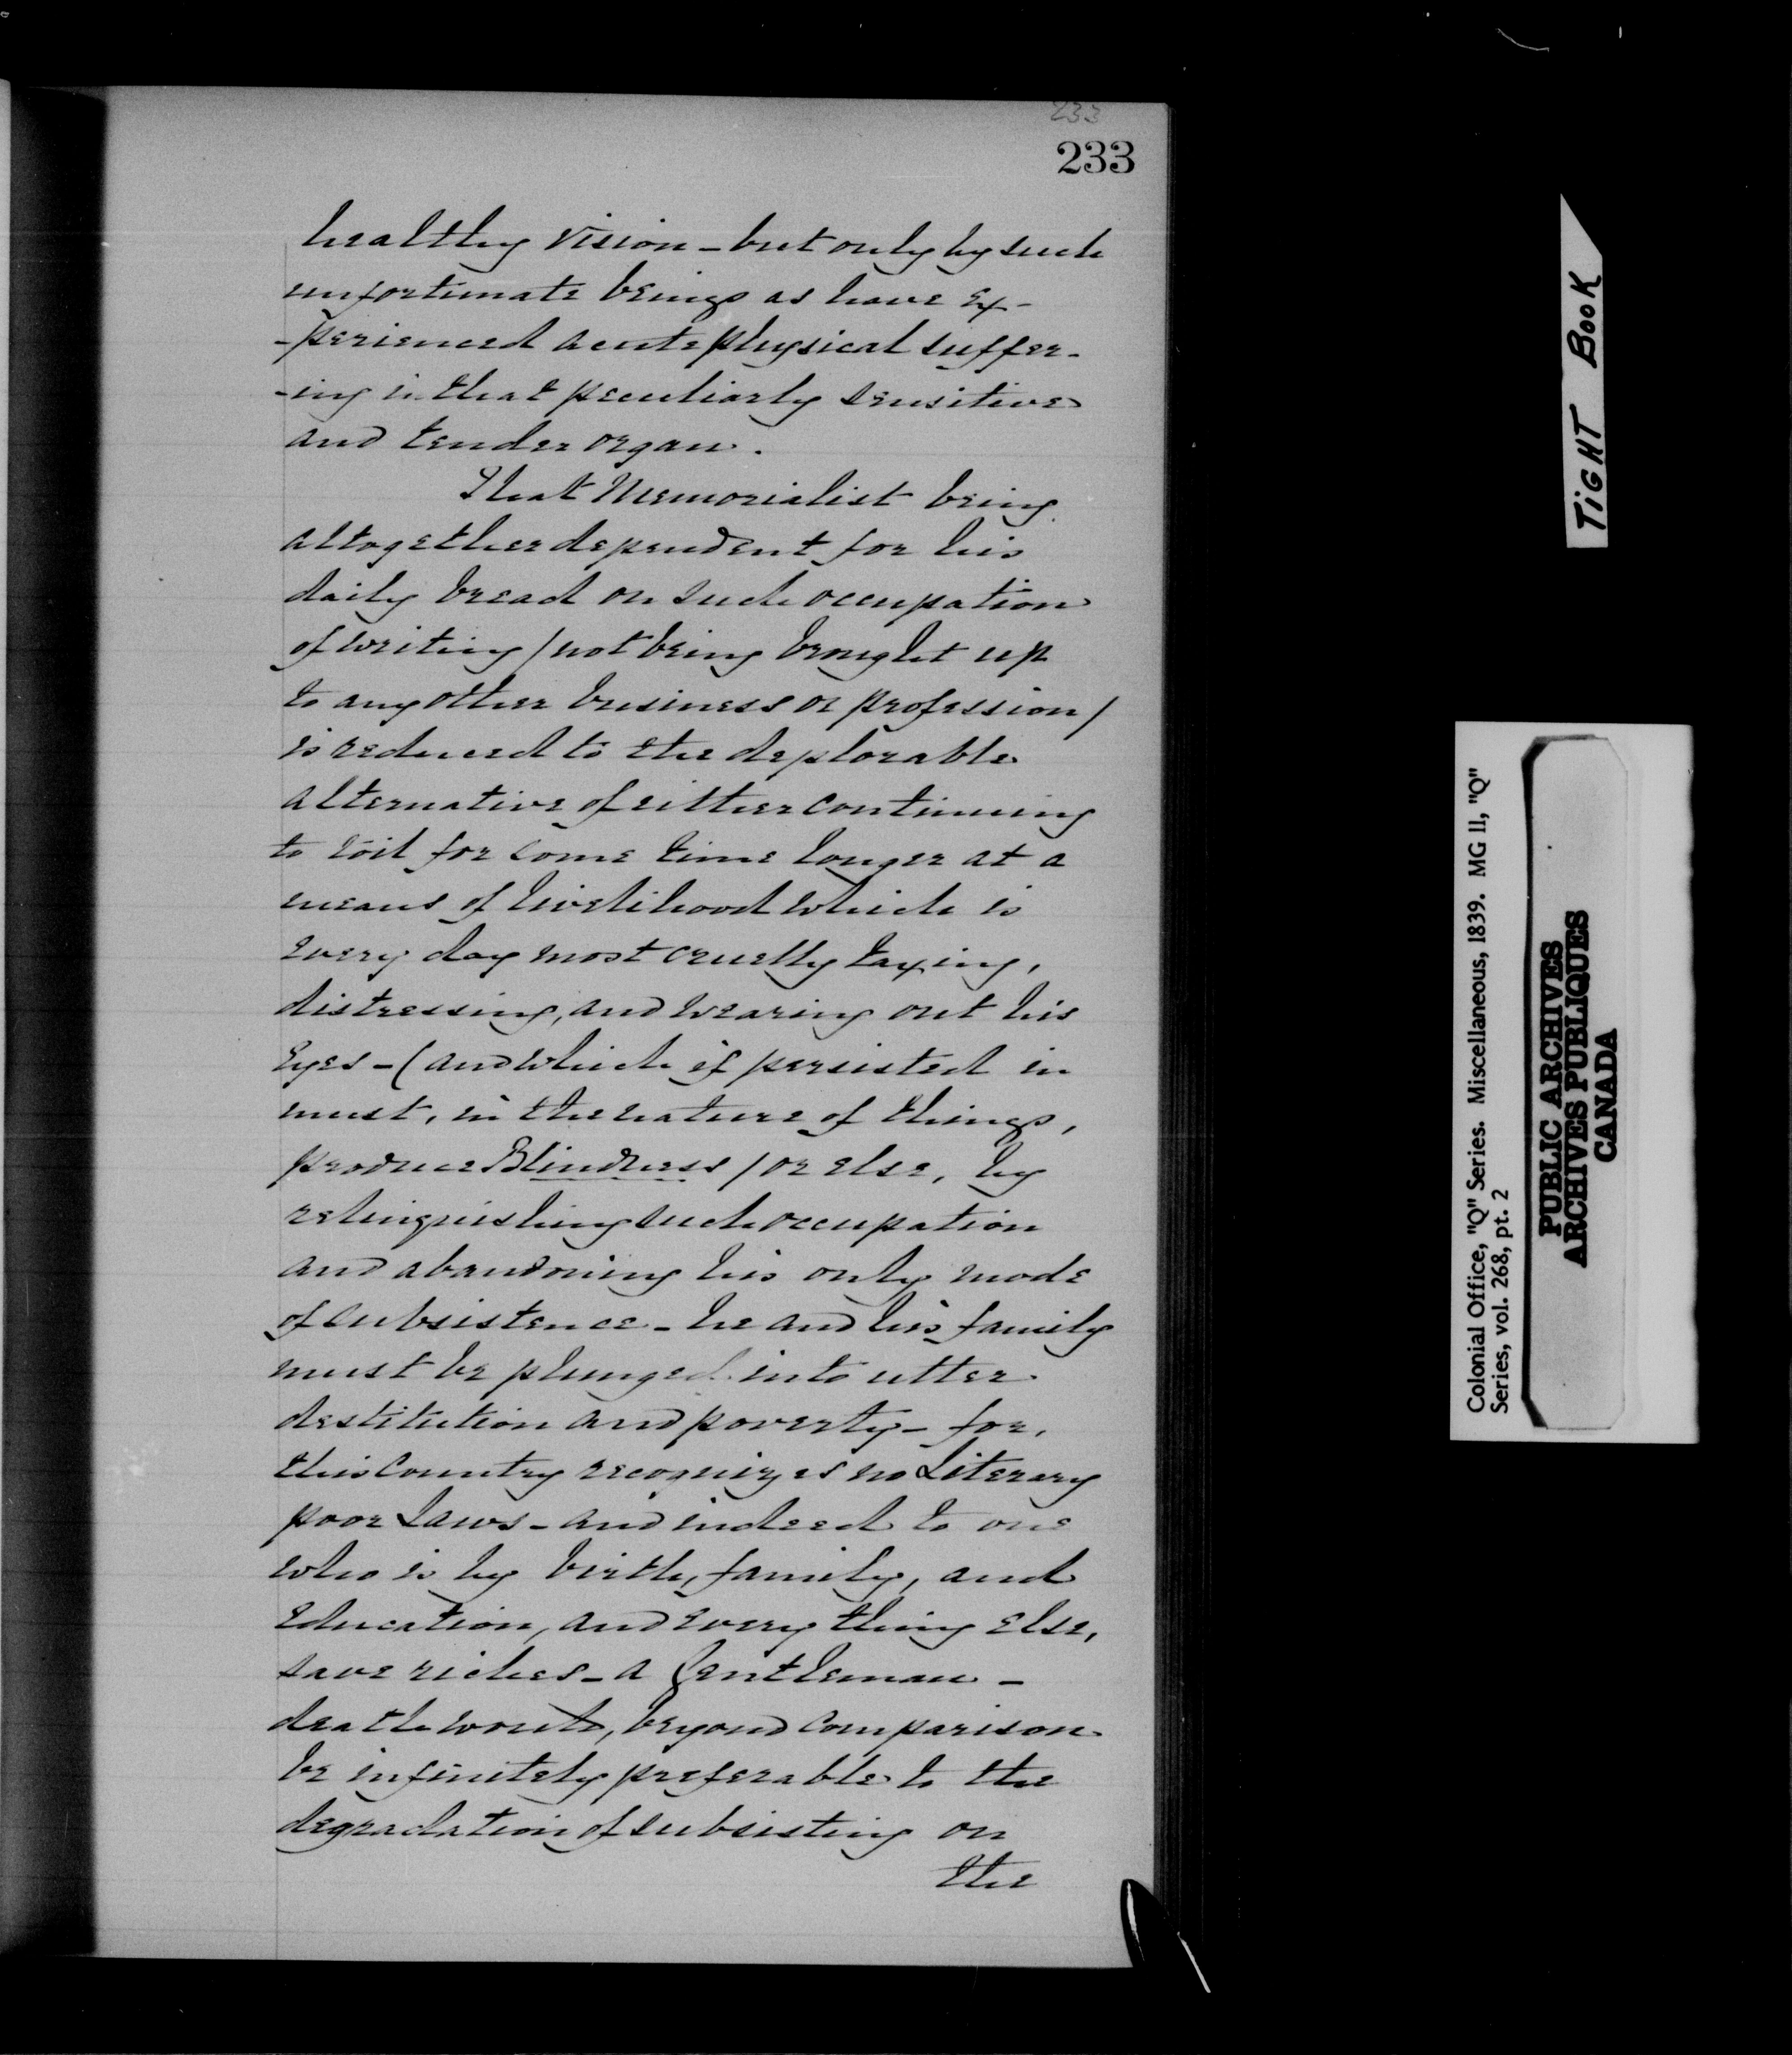 233
233
healthy vision - but only by such
unfortunate beings as have ex-
-perienced acute physical suffer-
-ing in that peculiarly sensitive
and tender organ.
That Memorialist being
altogether dependent for his
daily bread on such occupation
of writing / not being brought up
to any other business or profession /
is reduced to the deplorable
alternative of either continuing
to toil for some time longer at a
means of livelihood which is
every day most cruelly taxing,
distressing, and wearing out his
Eyes - ( and which if persisted in
must, in the nature of things,
produce Blindness / or else, by
relinquishing such occupation
and abandoning his only mode
of subsistence - he and his family
must be plunged into utter
destitution and poverty - for,
this Country recognizes no Literary
poor Laws - and indeed to one
who is by birth, family, and
Education, and every thing else,
save riches - a Gentleman -
death would, beyond comparison
be infinitely preferable to the
degradation of subsisting on
the
TIGHT BOOK
Colonial Office, "Q" Series. Miscellaneous, 1839. MG 11, "Q"
Series, vol. 268, pt. 2
PUBLIC ARCHIVES
ARCHIVES PUBLIQUES
CANADA